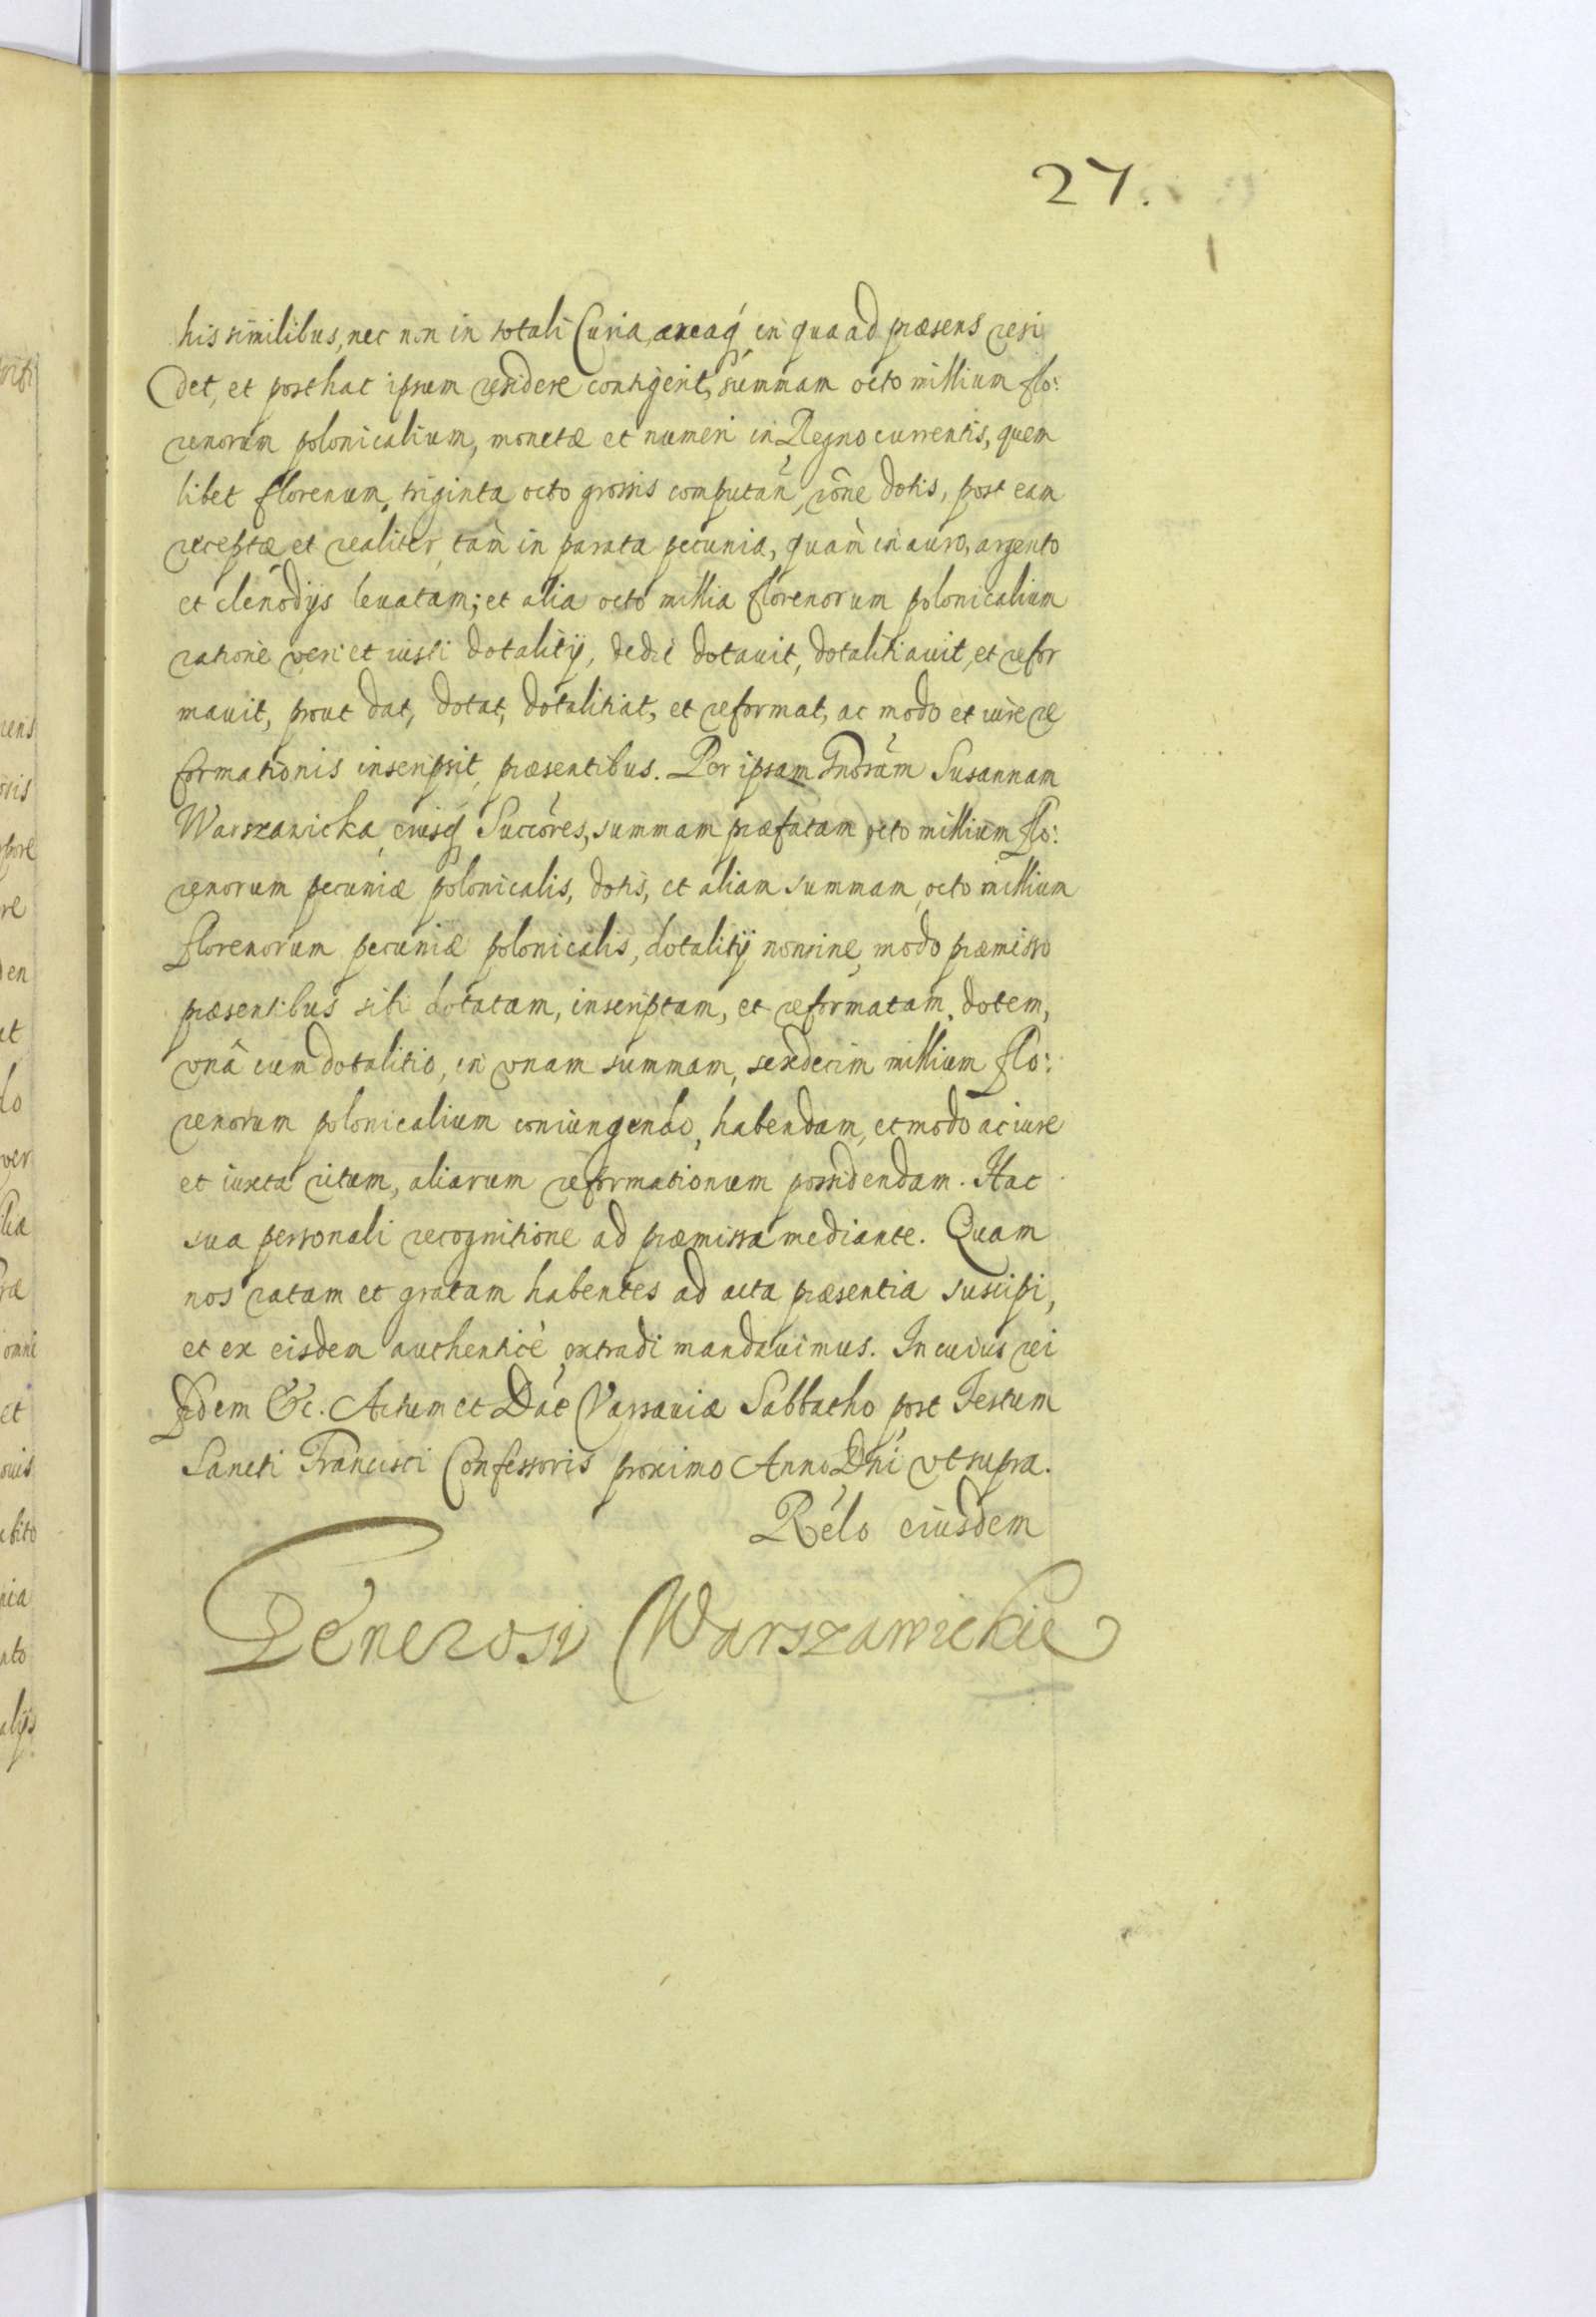 27.
his similibus, nec non in totali Curia, areaq́ in qua ad præsens resi
det, et posthac ipsum residere contigerit, summam octo millium flo:
renorum polonicalium, monetæ et numeri in Regno currentis, quem
libet florenum, triginta octo grossis computañ, rõne dotis, post eam
receptæ et realiter, tam̀ in parata pecunia, quam̀ in auro, argento
et clenodÿs leuatam; et alia octo millia florenorum polonicalium
ratione veri et iusti dotalitÿ, dedit dotauit, dotalitiauit, et refor
mauit, prout dat, dotat, dotalitiat, et reformat, ac modo et iure re
formationis inscripsit, præsentibus. Per ipsam Gnõsam Susannam
Warszawicka, eiusq́ Succõres, summam præfatam octo millium flo:
renorum pecuniæ polonicalis, dotis, et aliam summam, octo millium
florenorum pecuniæ polonicalis, dotalitÿ nomine, modo præmisso
præsentibus sibi dotatam, inscriptam, et reformatam, dotem,
vnâ cum dotalitio, in vnam summam, sexdecim millium flo:
renorum polonicalium coniungendo, habendam, et modo ac iure
et iuxta ritum, aliarum reformationum possidendam. Hac
sua personali recognitione ad præmissa mediante. Quam
nos ratam et gratam habentes ad acta præsentia suscipi,
et ex eisdem authenticè extradi mandauimus. In cuius rei
fidem &c. Actum et Dat́ Varsauiæ Sabbatho post Festum
Sancti Francisci Confessoris proximo Anno Dńi vt supra.
Rélo eiusdem
Generosi Warszawickie